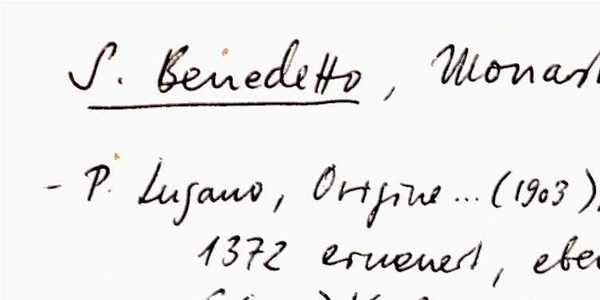 S. Benedetto, Monast
- P. Lugano, Origine...(1903),
1372 erneuert, eben